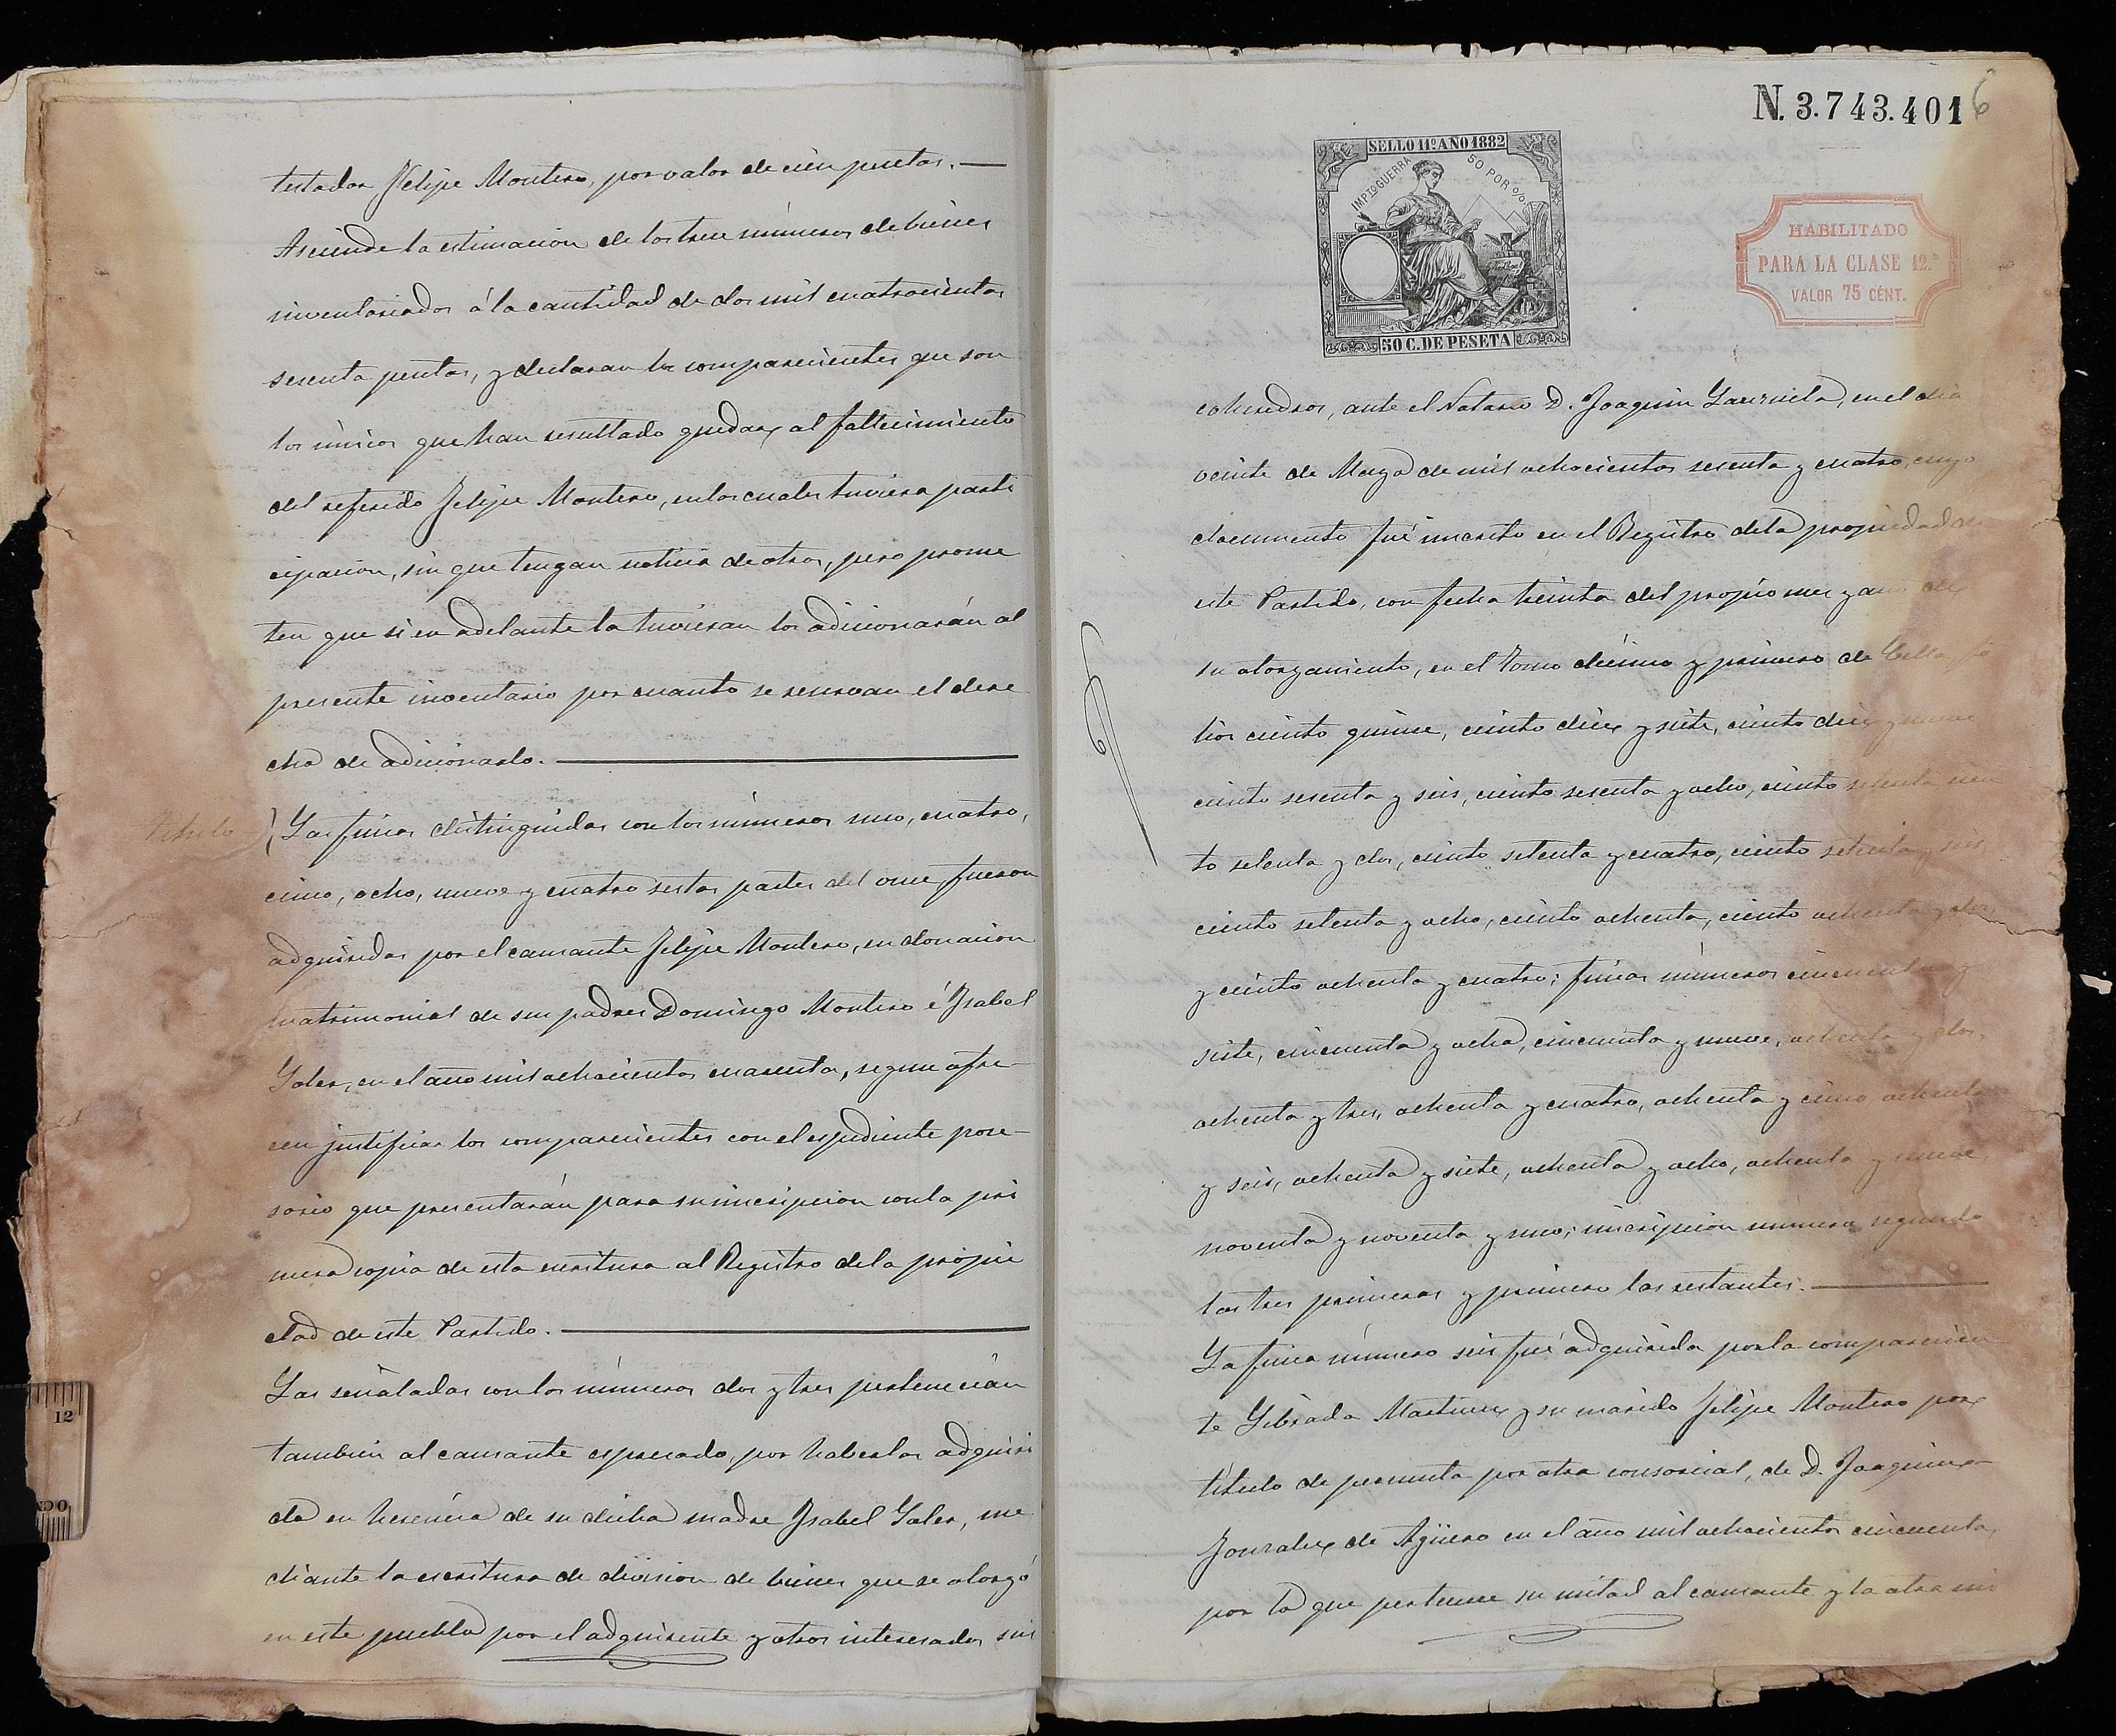 testador Felipe Montero, por valor de cien pesetas.
Asciende la estimacion de los trece números de bienes
inventariados á la cantidad de dos mil cuatrocientas
sesenta pesetas, y declaran los comparecientes que son
los únicos que han resultado quedar al fallecimiento
del referido Felipe Montero, en los cuales tuviera parti
cipacion, sin que tengan noticia de otros, pero prome
ten que si en adelante la tuvieran los adicionarán al
presente inventario por cuanto se reservan el dere
cho de adicionarlo.
Titulo) Las fincas distinguidas con los números uno, cuatro,
cinco, ocho, nueve y cuatro sestas partes del once, fueron
adquiridas por el causante Felipe Montero, en donacion
matrimonial de sus padres Domingo Montero é Isabel
Soler, en el año mil ochocientos cuarenta, segun ofre-
cen justificar los comparecientes con el espediente pose-
sorio que presentarán para su inscripcion con la pri
mera copia de esta escritura al Registro de la propie
dad de este Partido.
Las señaladas con los números dos y tres pertenecían
tambien al causante espresado, por haberlas adquiri
do en herencia de su dicha madre Isabel Soler, me
diante la escritura de division de bienes que se otorgó
en este pueblo por el adquirente y otros interesados sus
N. 3.743.401 6
SELLO 11º AÑO 1882
IMPTO GUERRA 50 POR %
50 C. DE PESETA
HABILITADO
PARA LA CLASE 12.ª
VALOR 75 CÉNT.
coherederos, ante el Notario D. Joaquin en el dia
veinte de Mayo de mil ochocientos sesenta y cuatro, cuyo
documento fué inscrito en el Registro de la propiedad de
este Partido, con fecha treinta del propio mes y año de
su otorgamiento, en el tomo décimo y primero de fo
lios ciento quince, ciento diez y siete, ciento diez y nueve
ciento sesenta y seis, ciento sesenta y ocho, ciento setenta cien
to setenta y dos, ciento setenta y cuatro, ciento setenta y seis,
ciento setenta y ocho, ciento ochenta, ciento ochenta y dos
y ciento ochenta y cuatro; fincas números cincuenta y
siete, cincuenta y ocho, cincuenta y nueve, ochenta y dos,
ochenta y tres, ochenta y cuatro, ochenta y cinco ochenta
y seis, ochenta y siete, ochenta y ocho, ochenta y nueve,
noventa y noventa y uno; inscripcion número segundo
las tres primeras y primero las restantes.
La finca número seis fué adquirida por la comparecien
te Librada Martinez y su marido Felipe Montero por
titulo de permuta por otra consorcial, de D. Joaquin
Gonzalez de Agüero en el año mil ochocientos cincuenta,
por lo que pertenece su mitad al causante y la otra mi